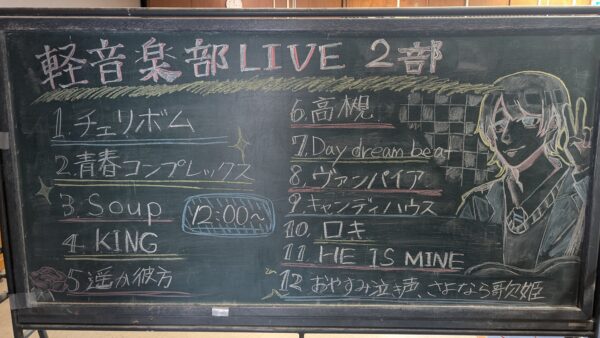 軽音楽部LIVE 2部
1.チェリボム
2.青春コンプレックス
3.Soup
4.KING
5.遥か彼方
12:00〜
6.高槻
7.Day dream beat
8.ヴァンパイア
9.キャンディハウス
10.ロキ
11.HE IS MINE
12.おやすみ泣き声、さよなら歌姫